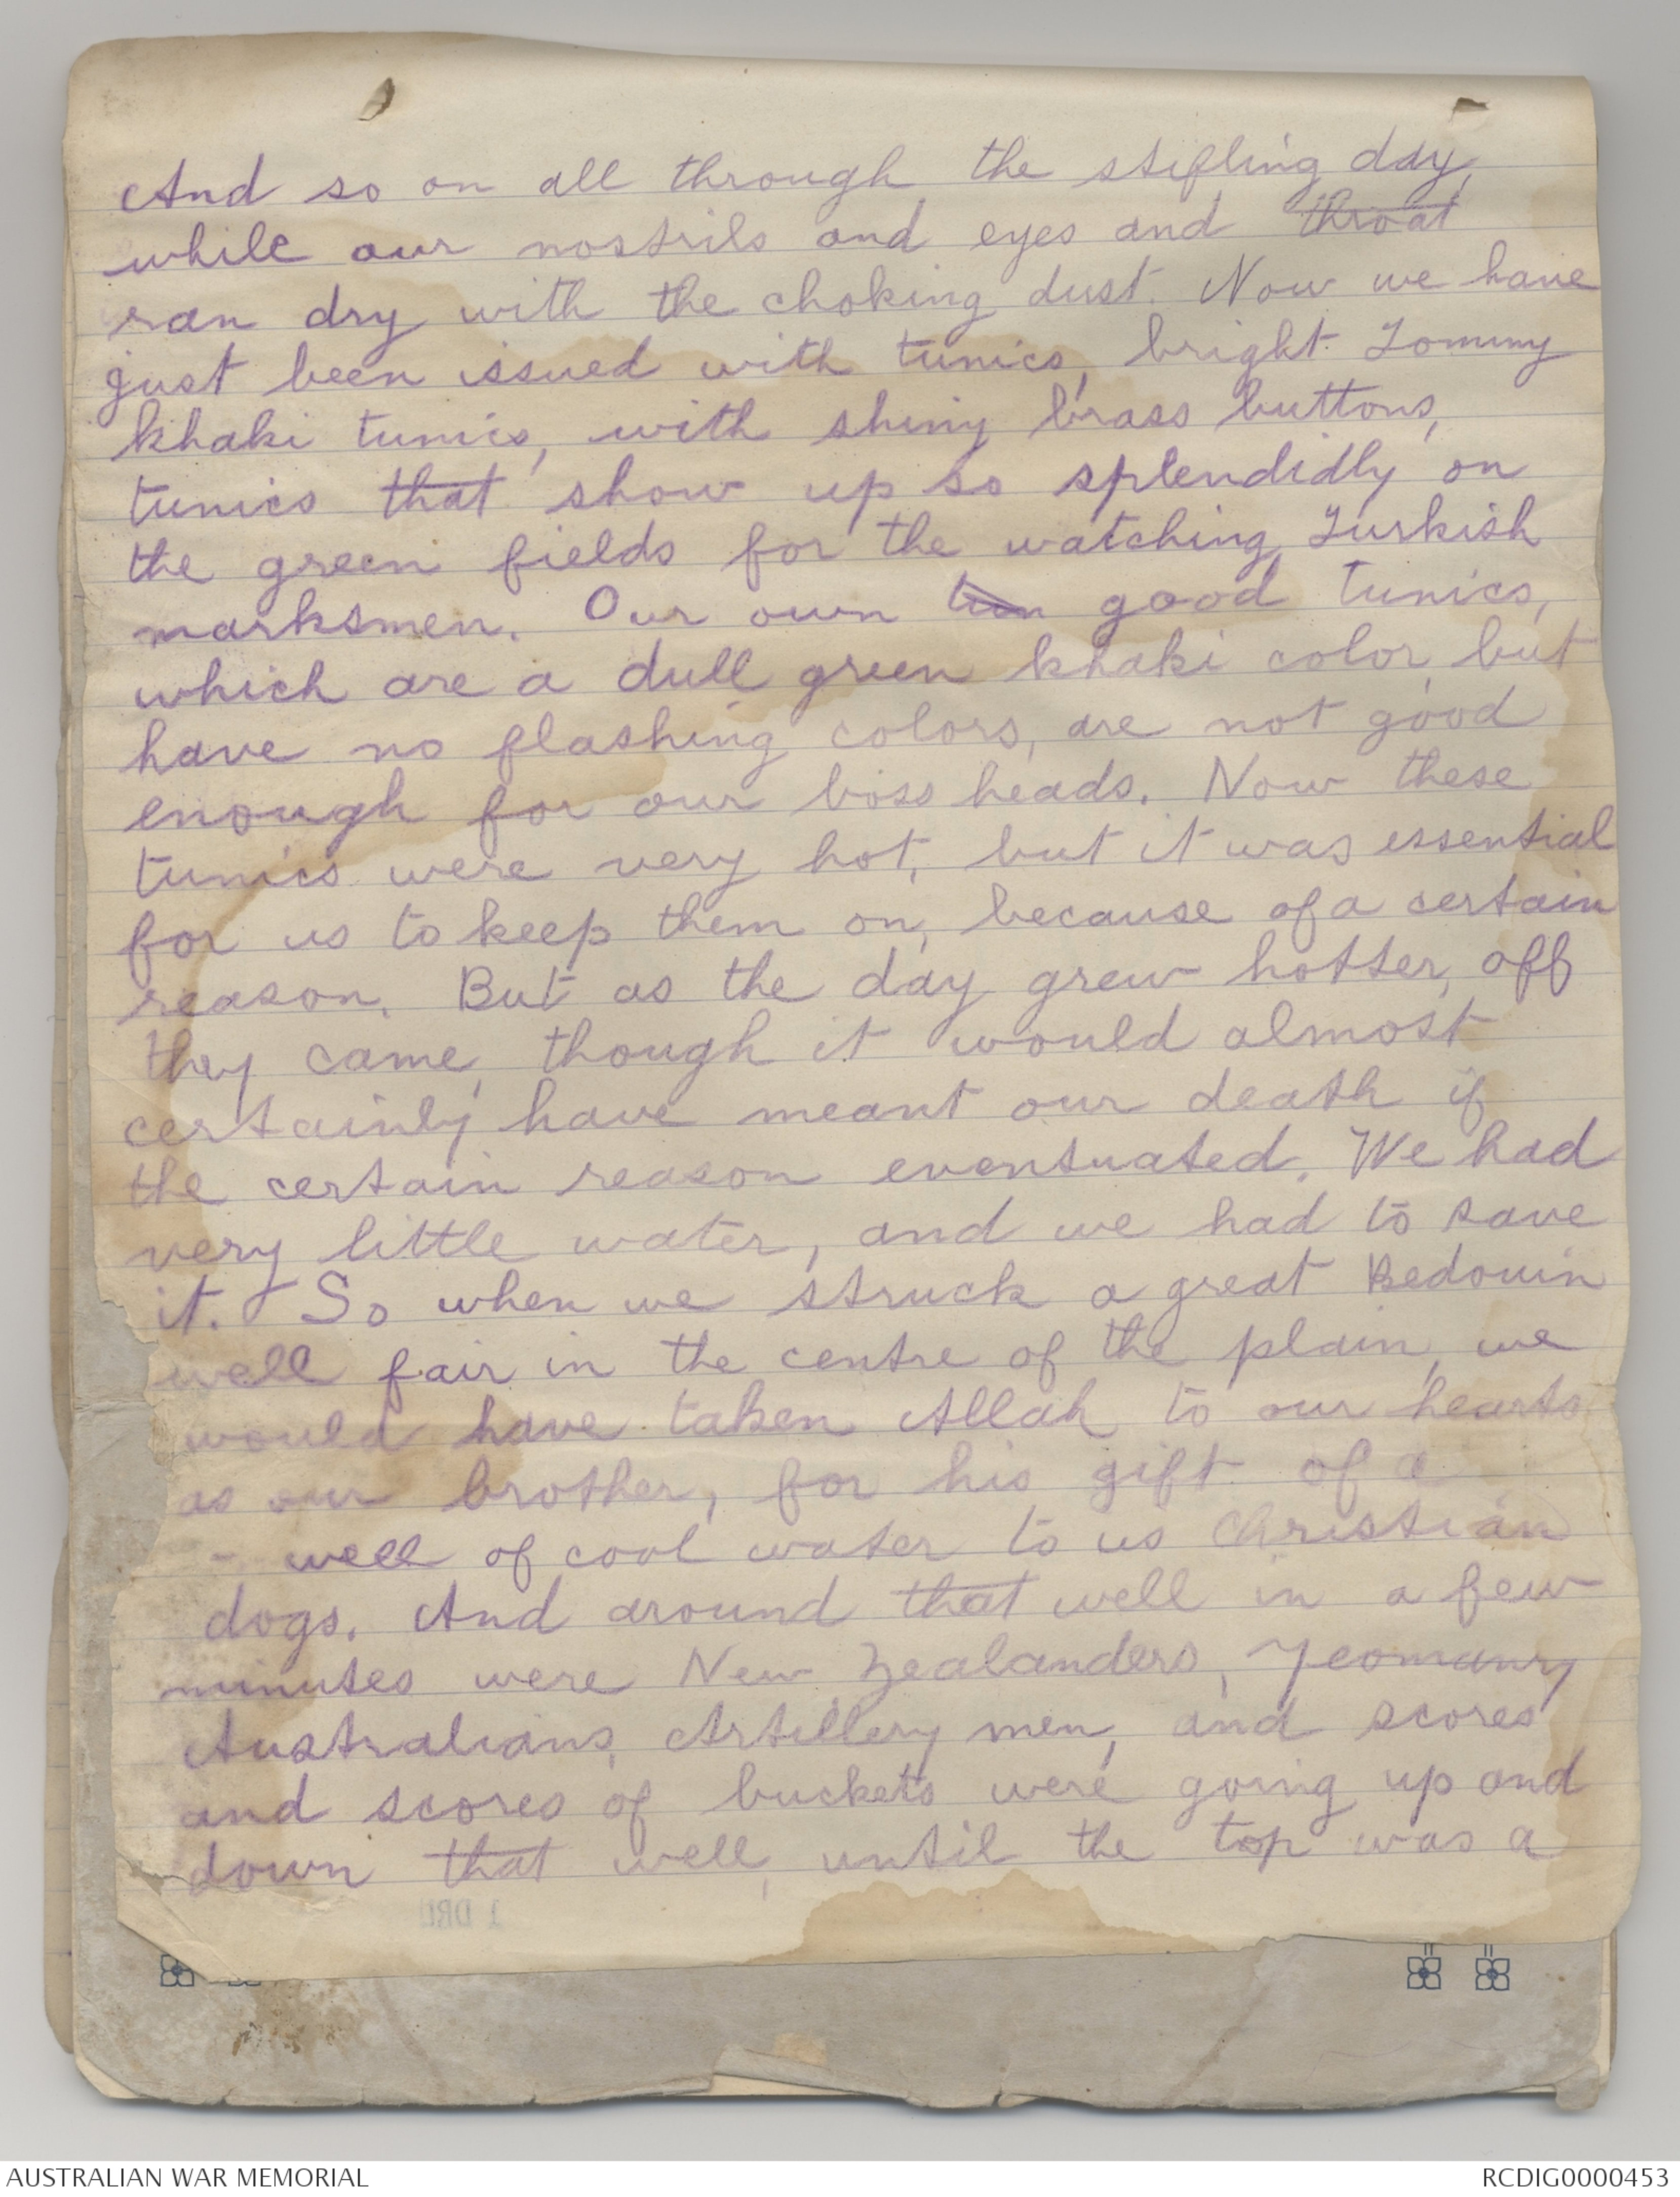 And so on all through the stifling day,
while our nostrils and eyes and throat
ran dry with the choking dust. Now we have
just been issued with tunics, bright Tommy
khaki tunics, with shiny brass buttons,
tunics that show up so splendidly on
the green fields for the watching Turkish
marksmen. Our own tun good tunics,
which are a dull green khaki color, but
have no flashing colors, are not good
enough for our boss heads. Now these
tunics were very hot, but it was essential
for us to keep them on, because of a certain
reason. But as the day grew hotter, off
they came, though it would almost
certainly have meant our death if
the certain reason eventuated. We had
very little water, and we had to save
it. So when we struck a great Bedouin
well fair in the centre of the plain, we
would have taken Allah to our hearts
as our brother, for his gift of a
well of cool water to us Christian
dogs. And around that well in a few
minutes were New Zealanders, Yeomanry
Australians, Artillery men, and scores
and scores of buckets were going up and
down that well, until the top was a
1 DRL
AUSTRALIAN WAR MEMORIAL
RCDIG0000453